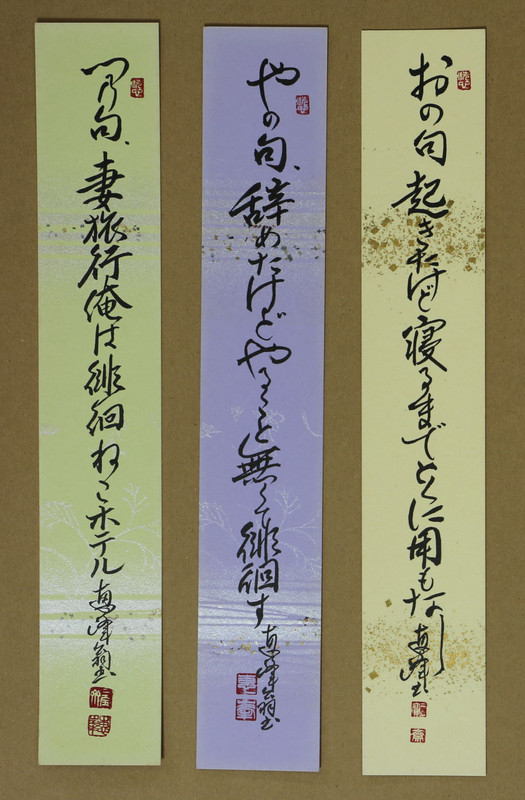 おの句 起きたけど寝るまでとくに用もなし
やの句、辞めたけどやること無くて徘徊す
の句、妻旅行俺は徘徊ねこホテル